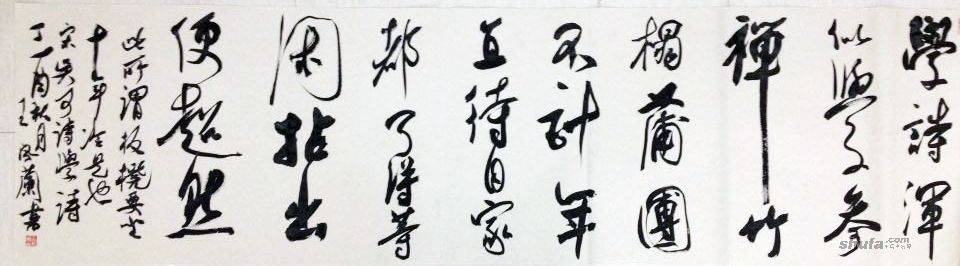 學詩渾
似學參
禪竹
榻蒲團
不計年
直待自家
都了得等
閑拈出
便超然
此所謂板櫈要坐
十年冷是也
宋吳可詩學詩
丁酉秋月
王蘭書
shufa.com